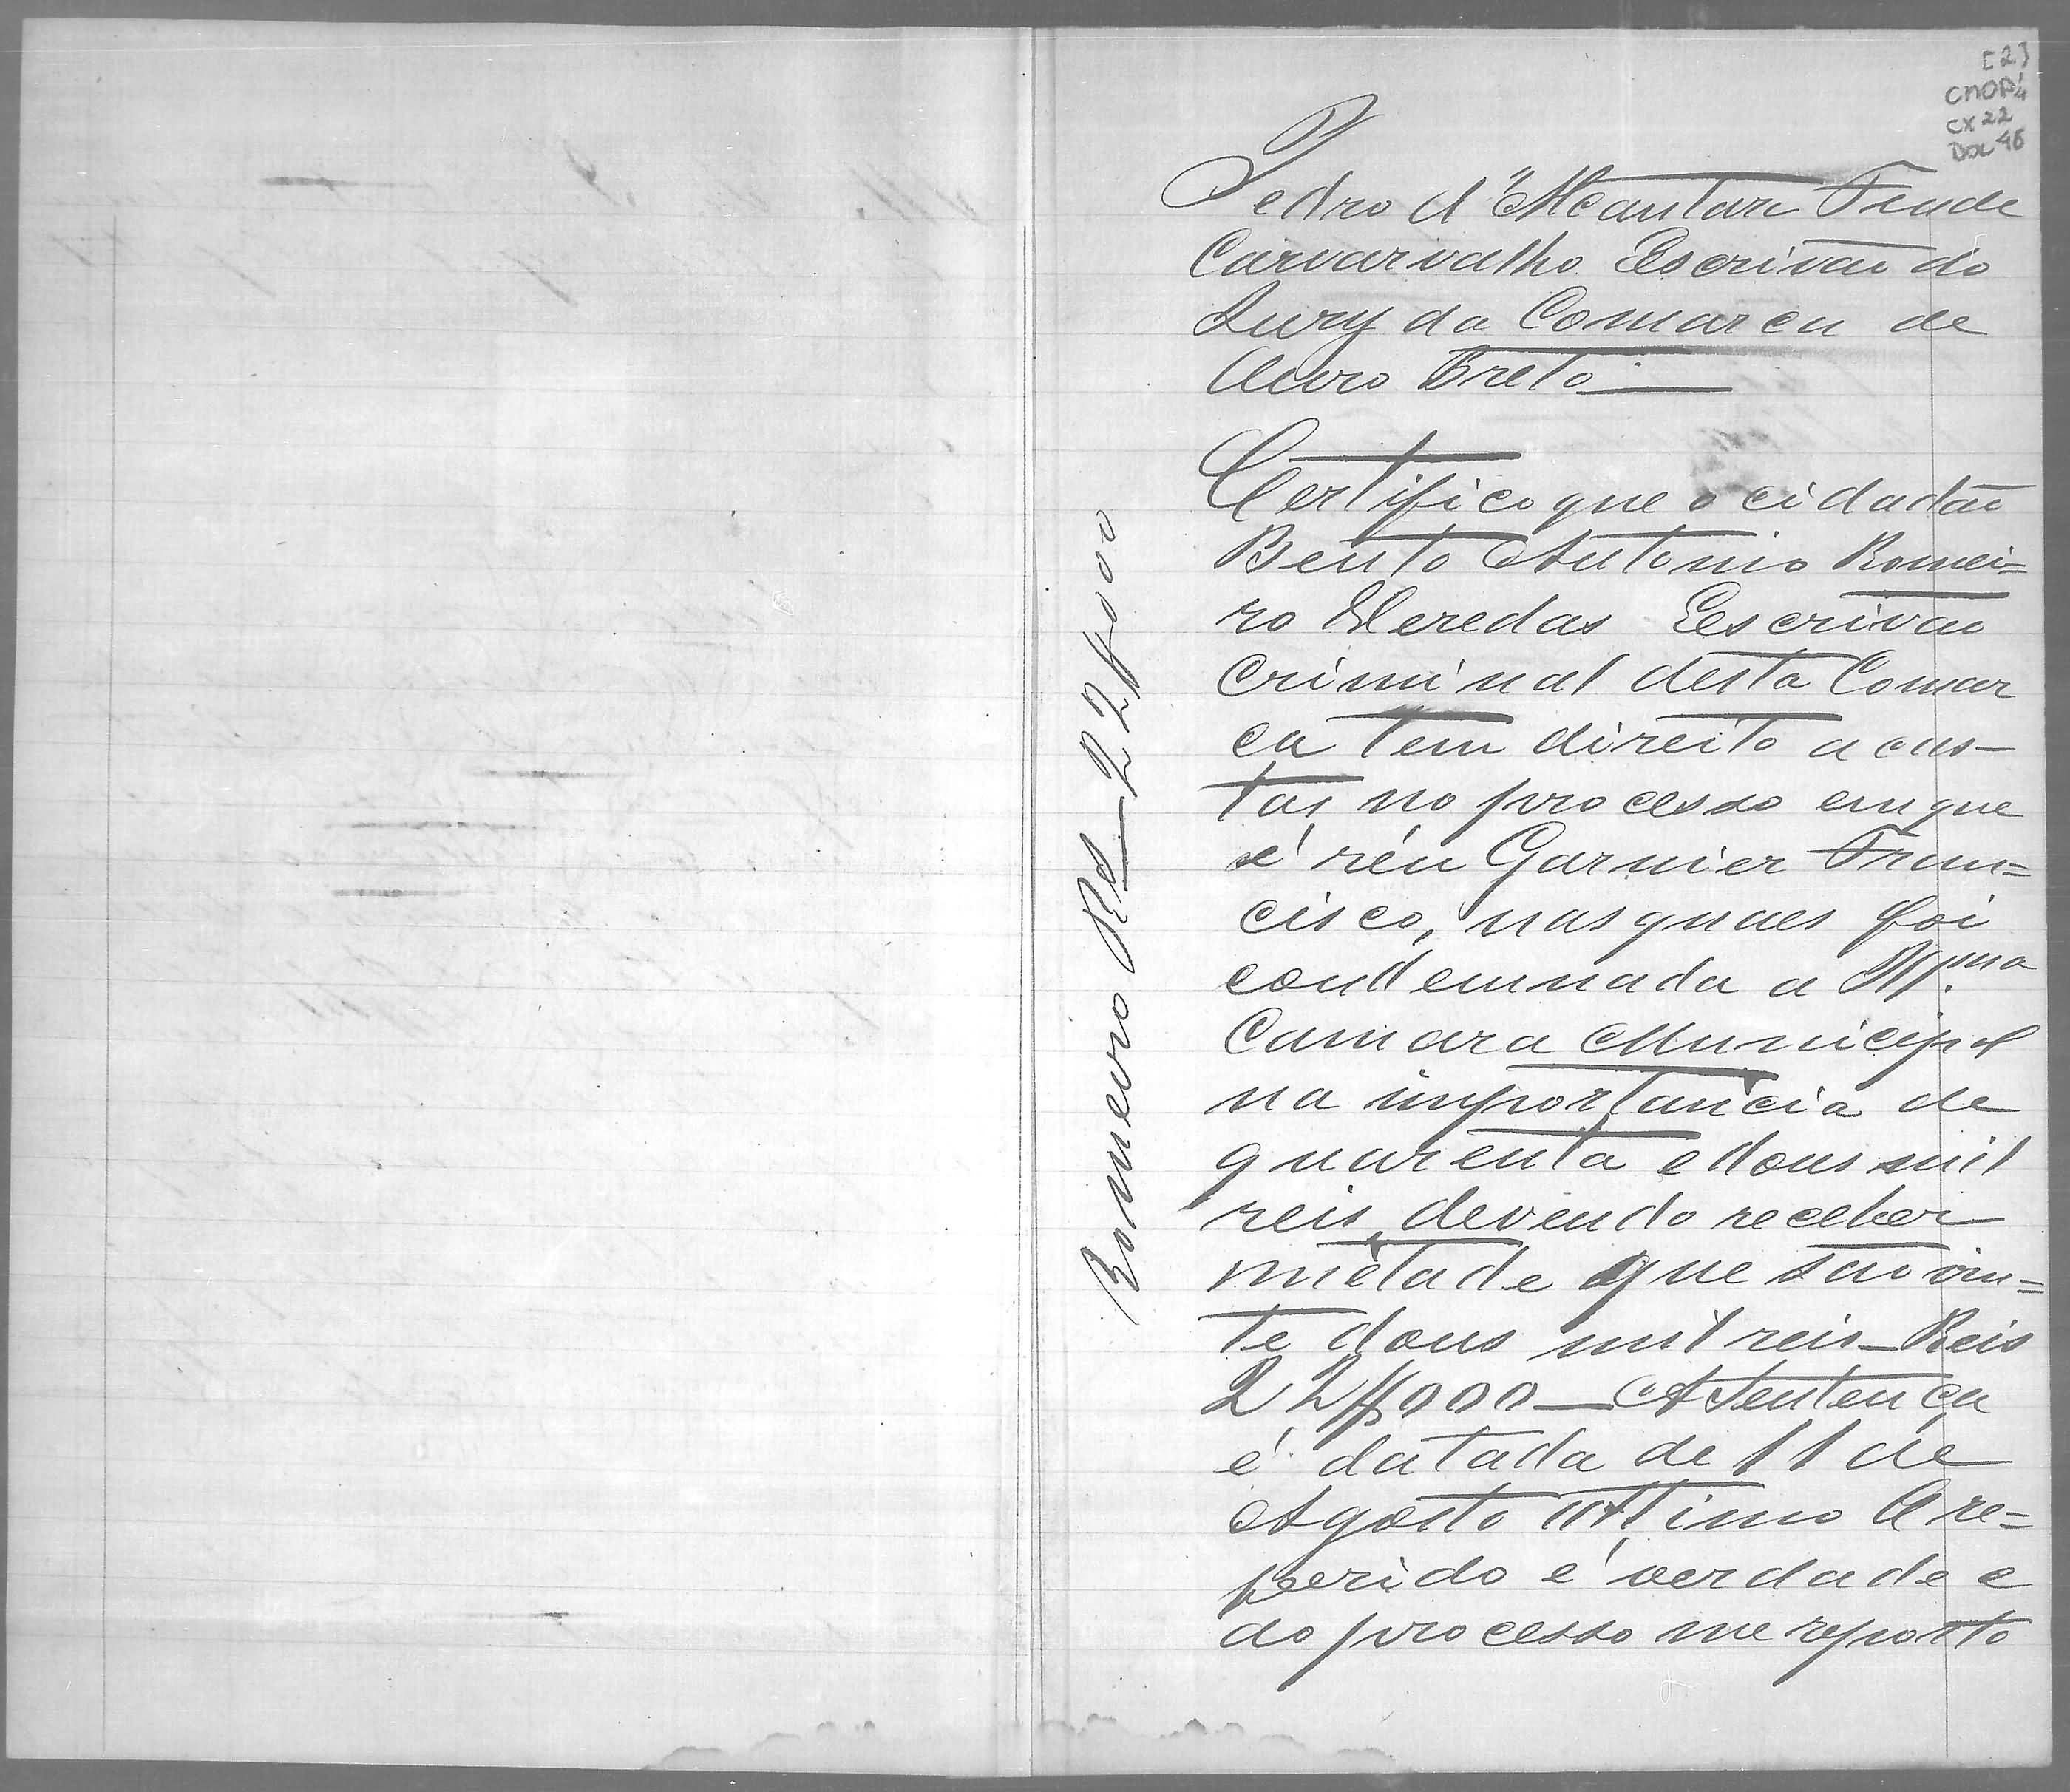 [2]
CMOP
CX 22
DOC 48
Pedro d'Alcantara Feu de
Carvarvalho Escrivão do
Jury da Comarca de
Ouro Preto
Certifico que o cidadão
Bento Antonio Romei=
ro Veredas Escrivão
Criminal desta Comar
ca tem direito a cus-
tas no processo em que
é réu Garnier Fran=
cisco, nas quaes foi
condemnada a Illma
Camara Municipal
na importancia de
quarenta e dous mil
reis, devendo receber
metade que são vin=
te dous mil reis - Reis
22$000 - A Sentença
é datada de 11 de
Agosto ultimo O re=
ferido é verdade e
do processo me reporto
Romeiro Rs 22$000